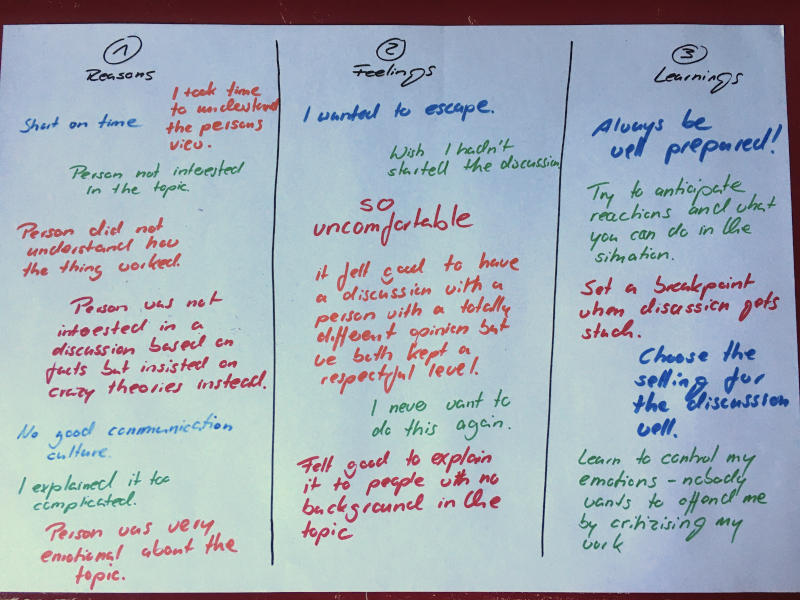 1
Reasons
Short on time
I took time
to understand
the persons
view.
Person not interested
in the topic.
Person did not
understand how
the thing worked.
Person was not
interested in a
discussion based on
facts but insisted on
crazy theories instead.
No good communication
culture.
I explained it too
complicated.
Person was very
emotional about the
topic.
2
Feelings
I wanted to escape.
Wish I hadn't
started the discussion
SO
uncomfortable
it felt good to have
a discussion with a
person with a totally
different opinion but
we both kept a
respectful level.
I never want to
do this again.
Felt good to explain
it to people with no
background in the
topic
3
Learnings
Always be
well prepared!
Try to anticipate
reactions and what
you can do in the
situation.
Set a breakpoint
when discussion gets
stuck.
Choose the
setting for
the discussion
well.
Learn to control my
emotions - nobody
wants to offend me
by critizising my
work